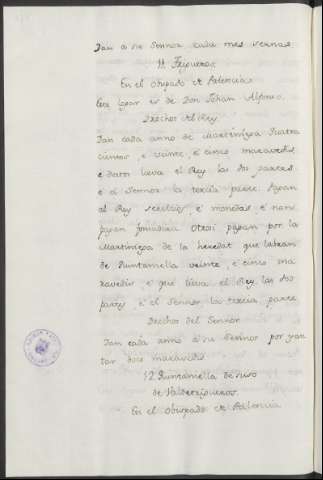 Dan a su Sennor cada mes sernas
11 Frigueros.
En el Obispado de Palencia
Este logar es de Don Johan Alfonso.
Derechos del Rey
Dan cada anno de Martiniega Quatro
cientos, e veinte, e cinco maravedis
e destos lieva el Rey las dos partes
e el Sennor la tercia parte. Pagan
al Rey servicios, e monedas, e non
pagan fonsadera. Otrosi pagan por la
Martiniega de la heredat que labran
de Quintaniella veinte, e cinco ma
ravedis, e que lieva el Rey las dos
partes, e el Sennor la tercia parte
Derechos del Sennor
Dan cada anno a su Sennor por yan
tar doce maravedis
12 Quintaniella de yuso
de Valdefrigueros.
En el Obispado de Palencia